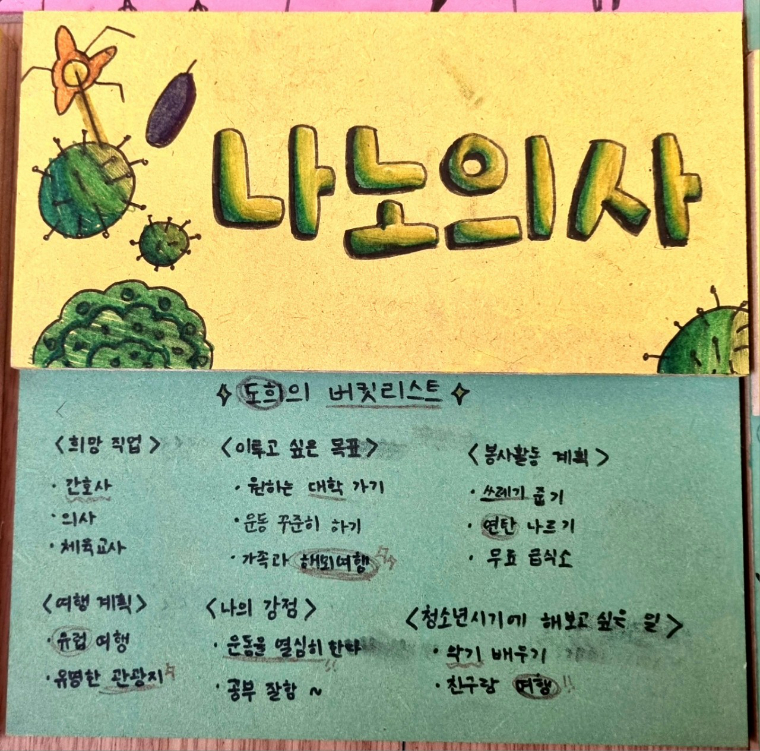 나노의사
도희의 버킷리스트
<희망 직업>
· 간호사
· 의사
· 체육교사
<이루고 싶은 목표>
· 원하는 대학 가기
· 운동 꾸준히 하기
· 가족과 해외여행
<봉사활동 계획>
· 쓰레기 줍기
· 연탄 나르기
· 무료 급식소
<여행 계획>
· 유럽 여행
· 유명한 관광지
<나의 강점>
· 운동을 열심히 한다
· 공부 잘함 ~
<청소년시기에 해보고 싶은 일>
· 악기 배우기
· 친구랑 여행!!